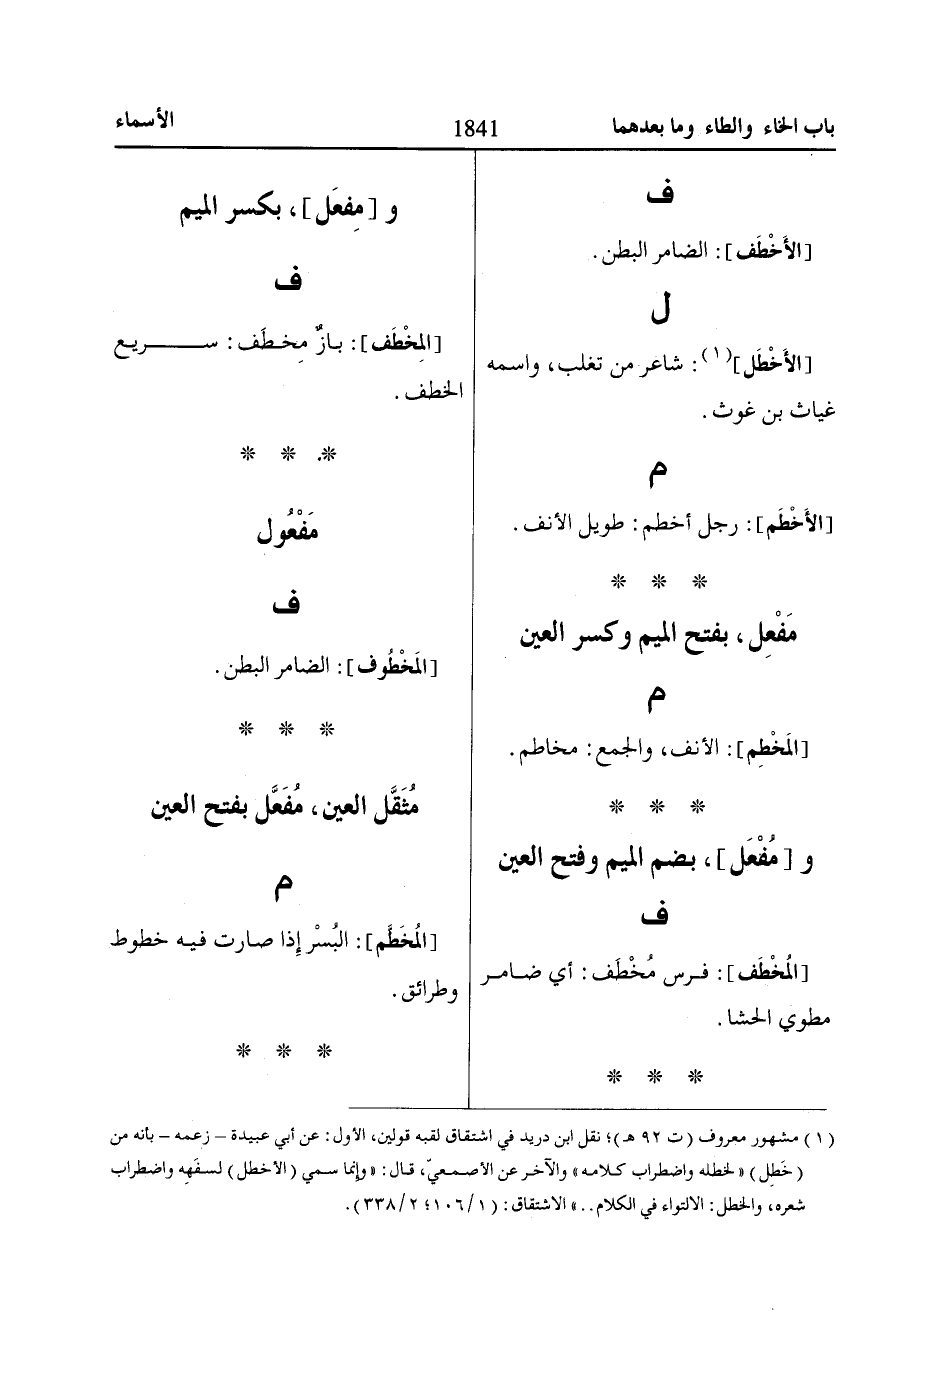 باب الخاء والطاء وما بعدهما
1841
الأسماء
ف
[الأَخْطَف]: الضامر البطن.
ل
[الأَخْطَل](١): شاعر من تغلب، واسمه
غياث بن غوث.
م
[الأَخْطَم]: رجل أخطم: طويل الأنف.
* * *
مَفْعِل، بفتح الميم وكسر العين
م
[المَخْطِم]: الأنف، والجمع: مخاطم.
* * *
و [مُفْعَل]، بضم الميم وفتح العين
ف
[المُخْطَف]: فرس مُخْطَف: أي ضامر
مطوي الحشا.
* * *
و [مِفعَل]، بكسر الميم
ف
[المِخْطَف]: بازٌ مِخطَف: سريع
الخطف.
* * *
مَفْعُول
ف
[المَخْطُوف]: الضامر البطن.
* * *
مُثَقَّل العين، مُفَعَّل بفتح العين
م
[المُخَطَّم]: البُسْر إِذا صارت فيه خطوط
وطرائق.
* * *
(١) مشهور معروف (ت ٩٢ هـ)؛ نقل ابن دريد في اشتقاق لقبه قولين، الأول: عن أبي عبيدة – زعمه – بأنه من
(خَطِل) «لخطله واضطراب كلامه» والآخر عن الأصمعيّ، قال: «وإنما سمي (الأخطل) لسفَهِه واضطراب
شعره، والخطل: الالتواء في الكلام..» الاشتقاق: (١/١٠٦؛ ٢/٣٣٨).